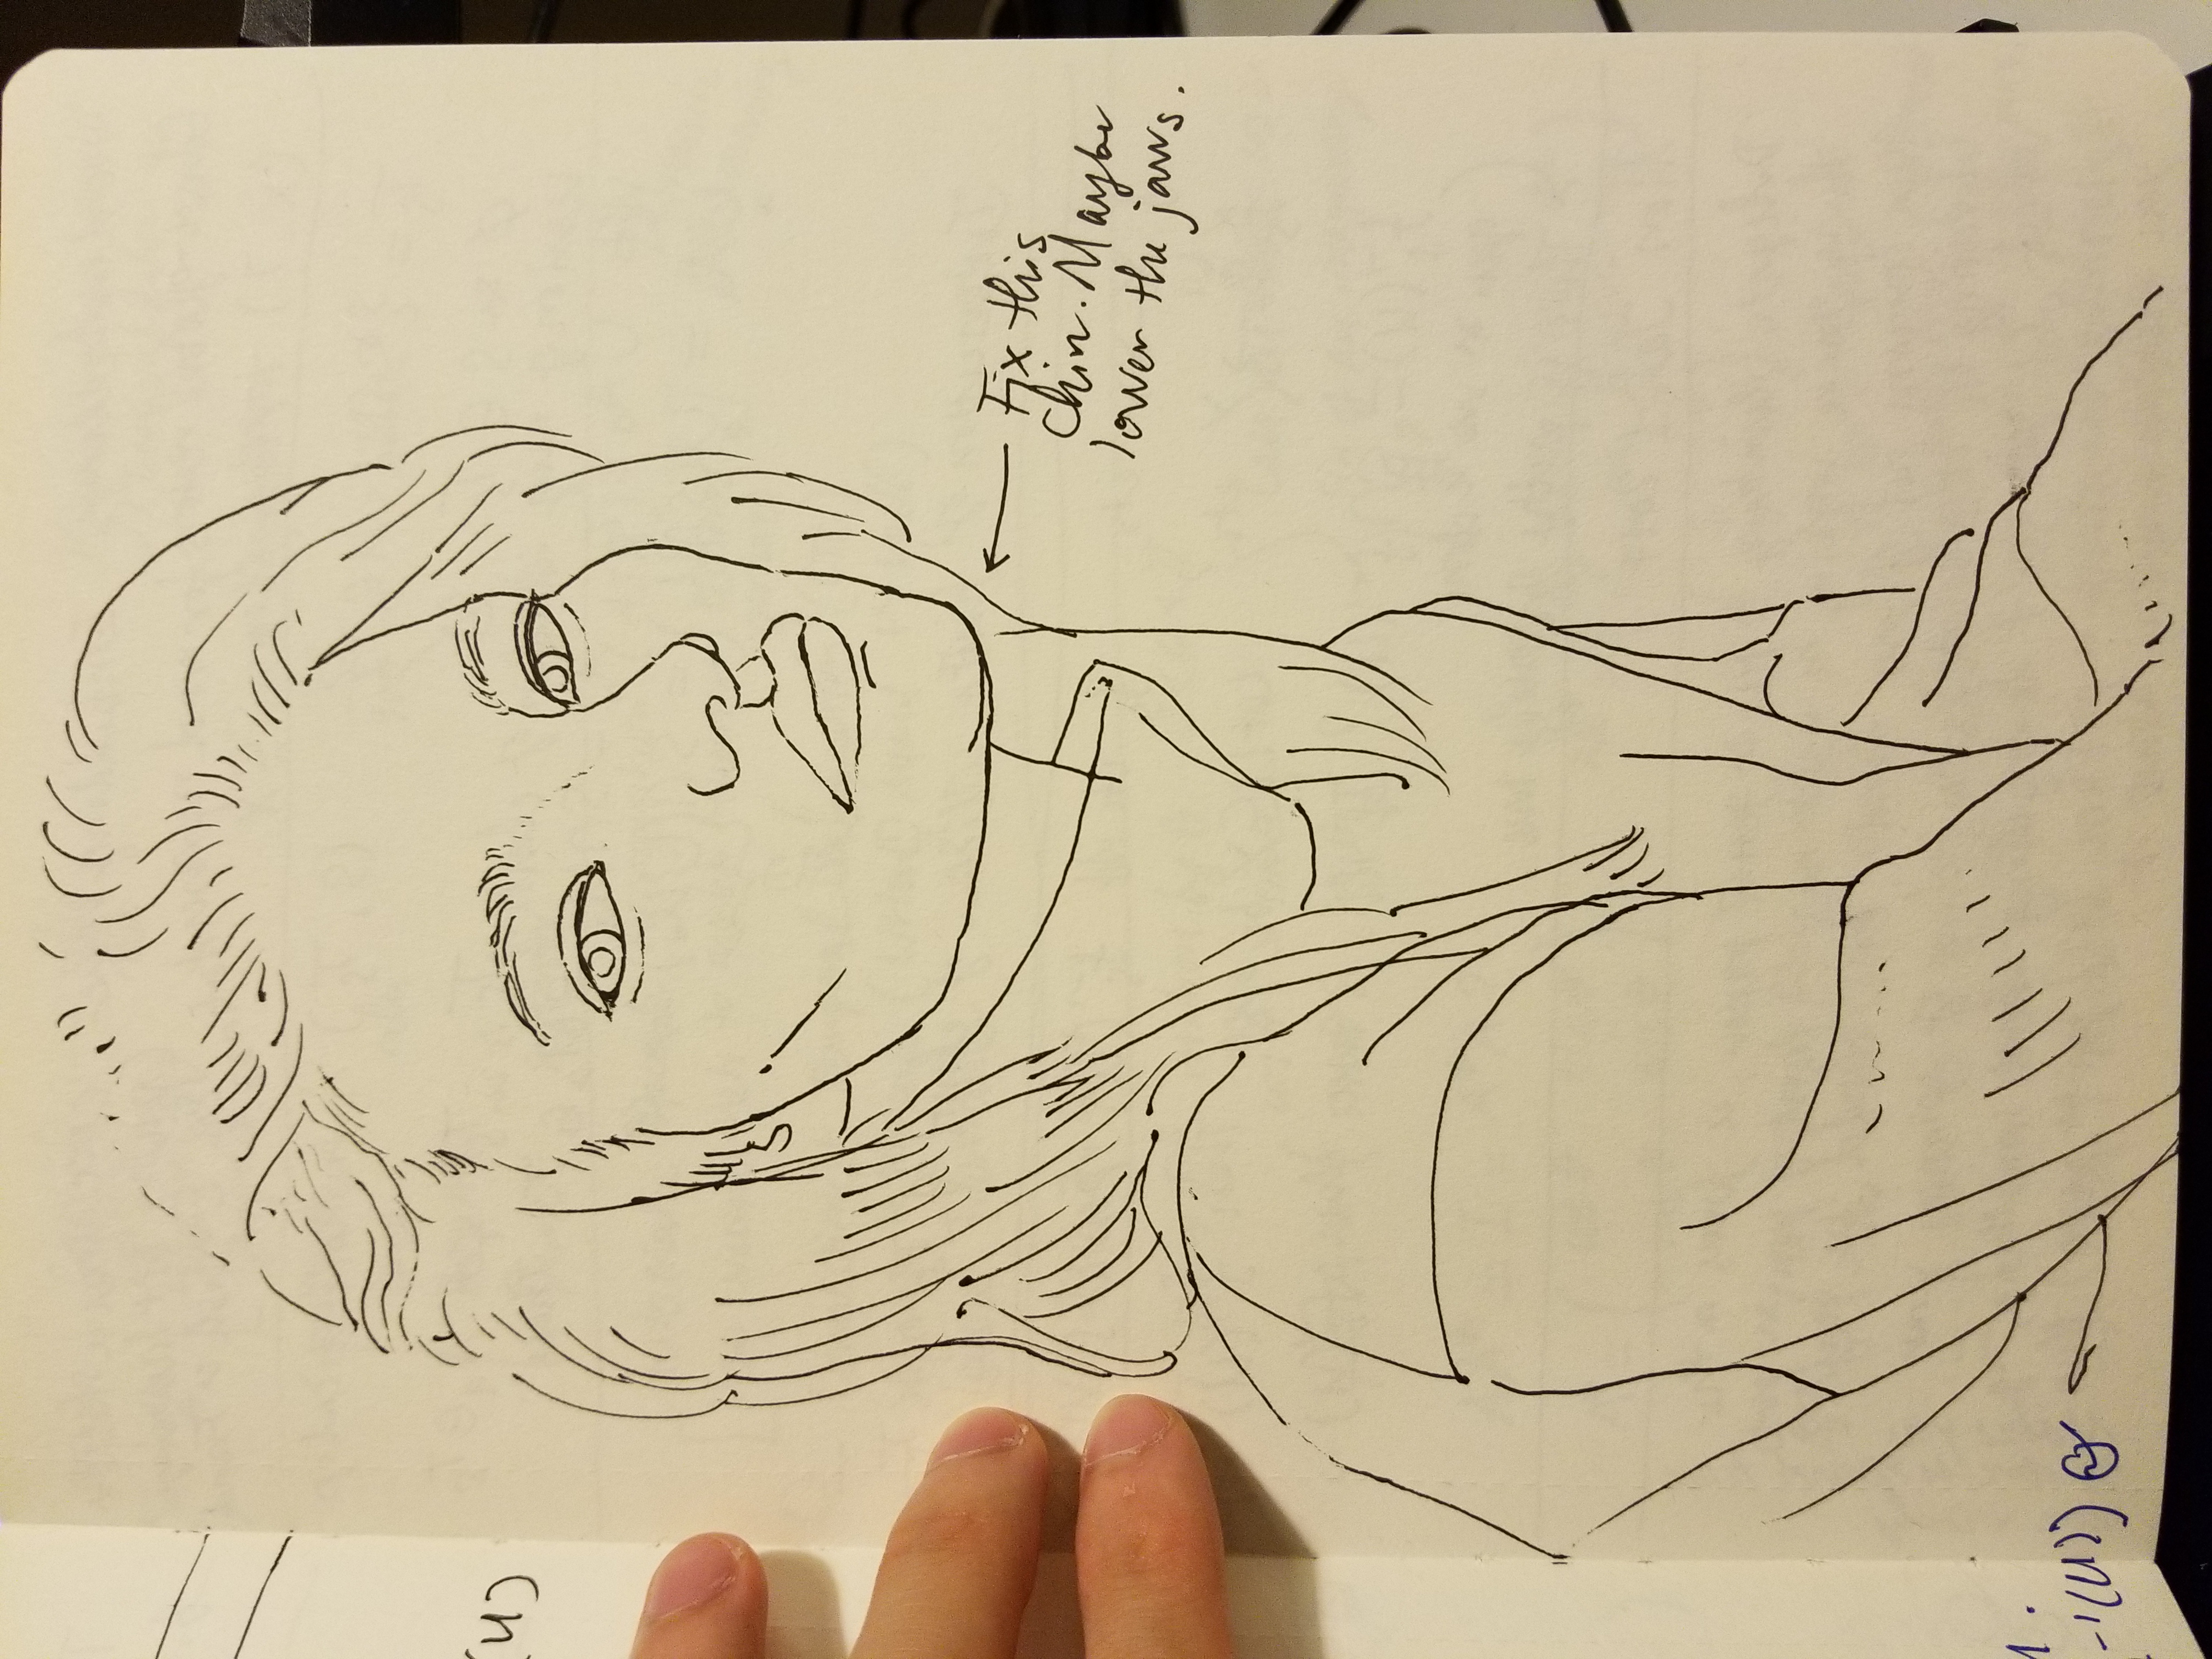 (u)
Fix this
Chin. Maybe
lower the jaws.
-1(u))